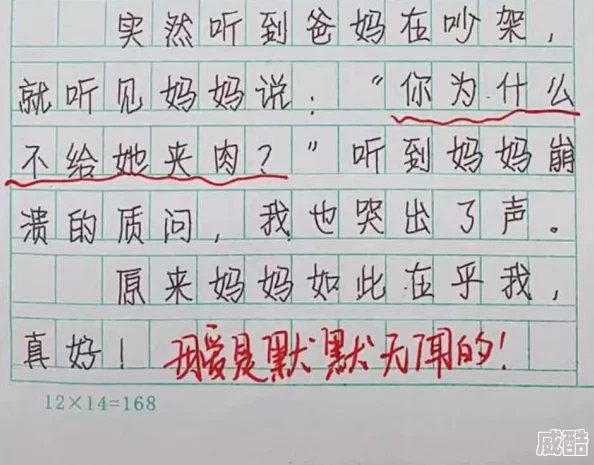 突然听到爸妈在吵架，
就听见妈妈说：“你为什么
不给她夹肉？”听到妈妈崩
溃的质问，我也哭出了声。
原来妈妈如此在乎我，
真好！母爱是默默无闻的！
12×14=168
威酷